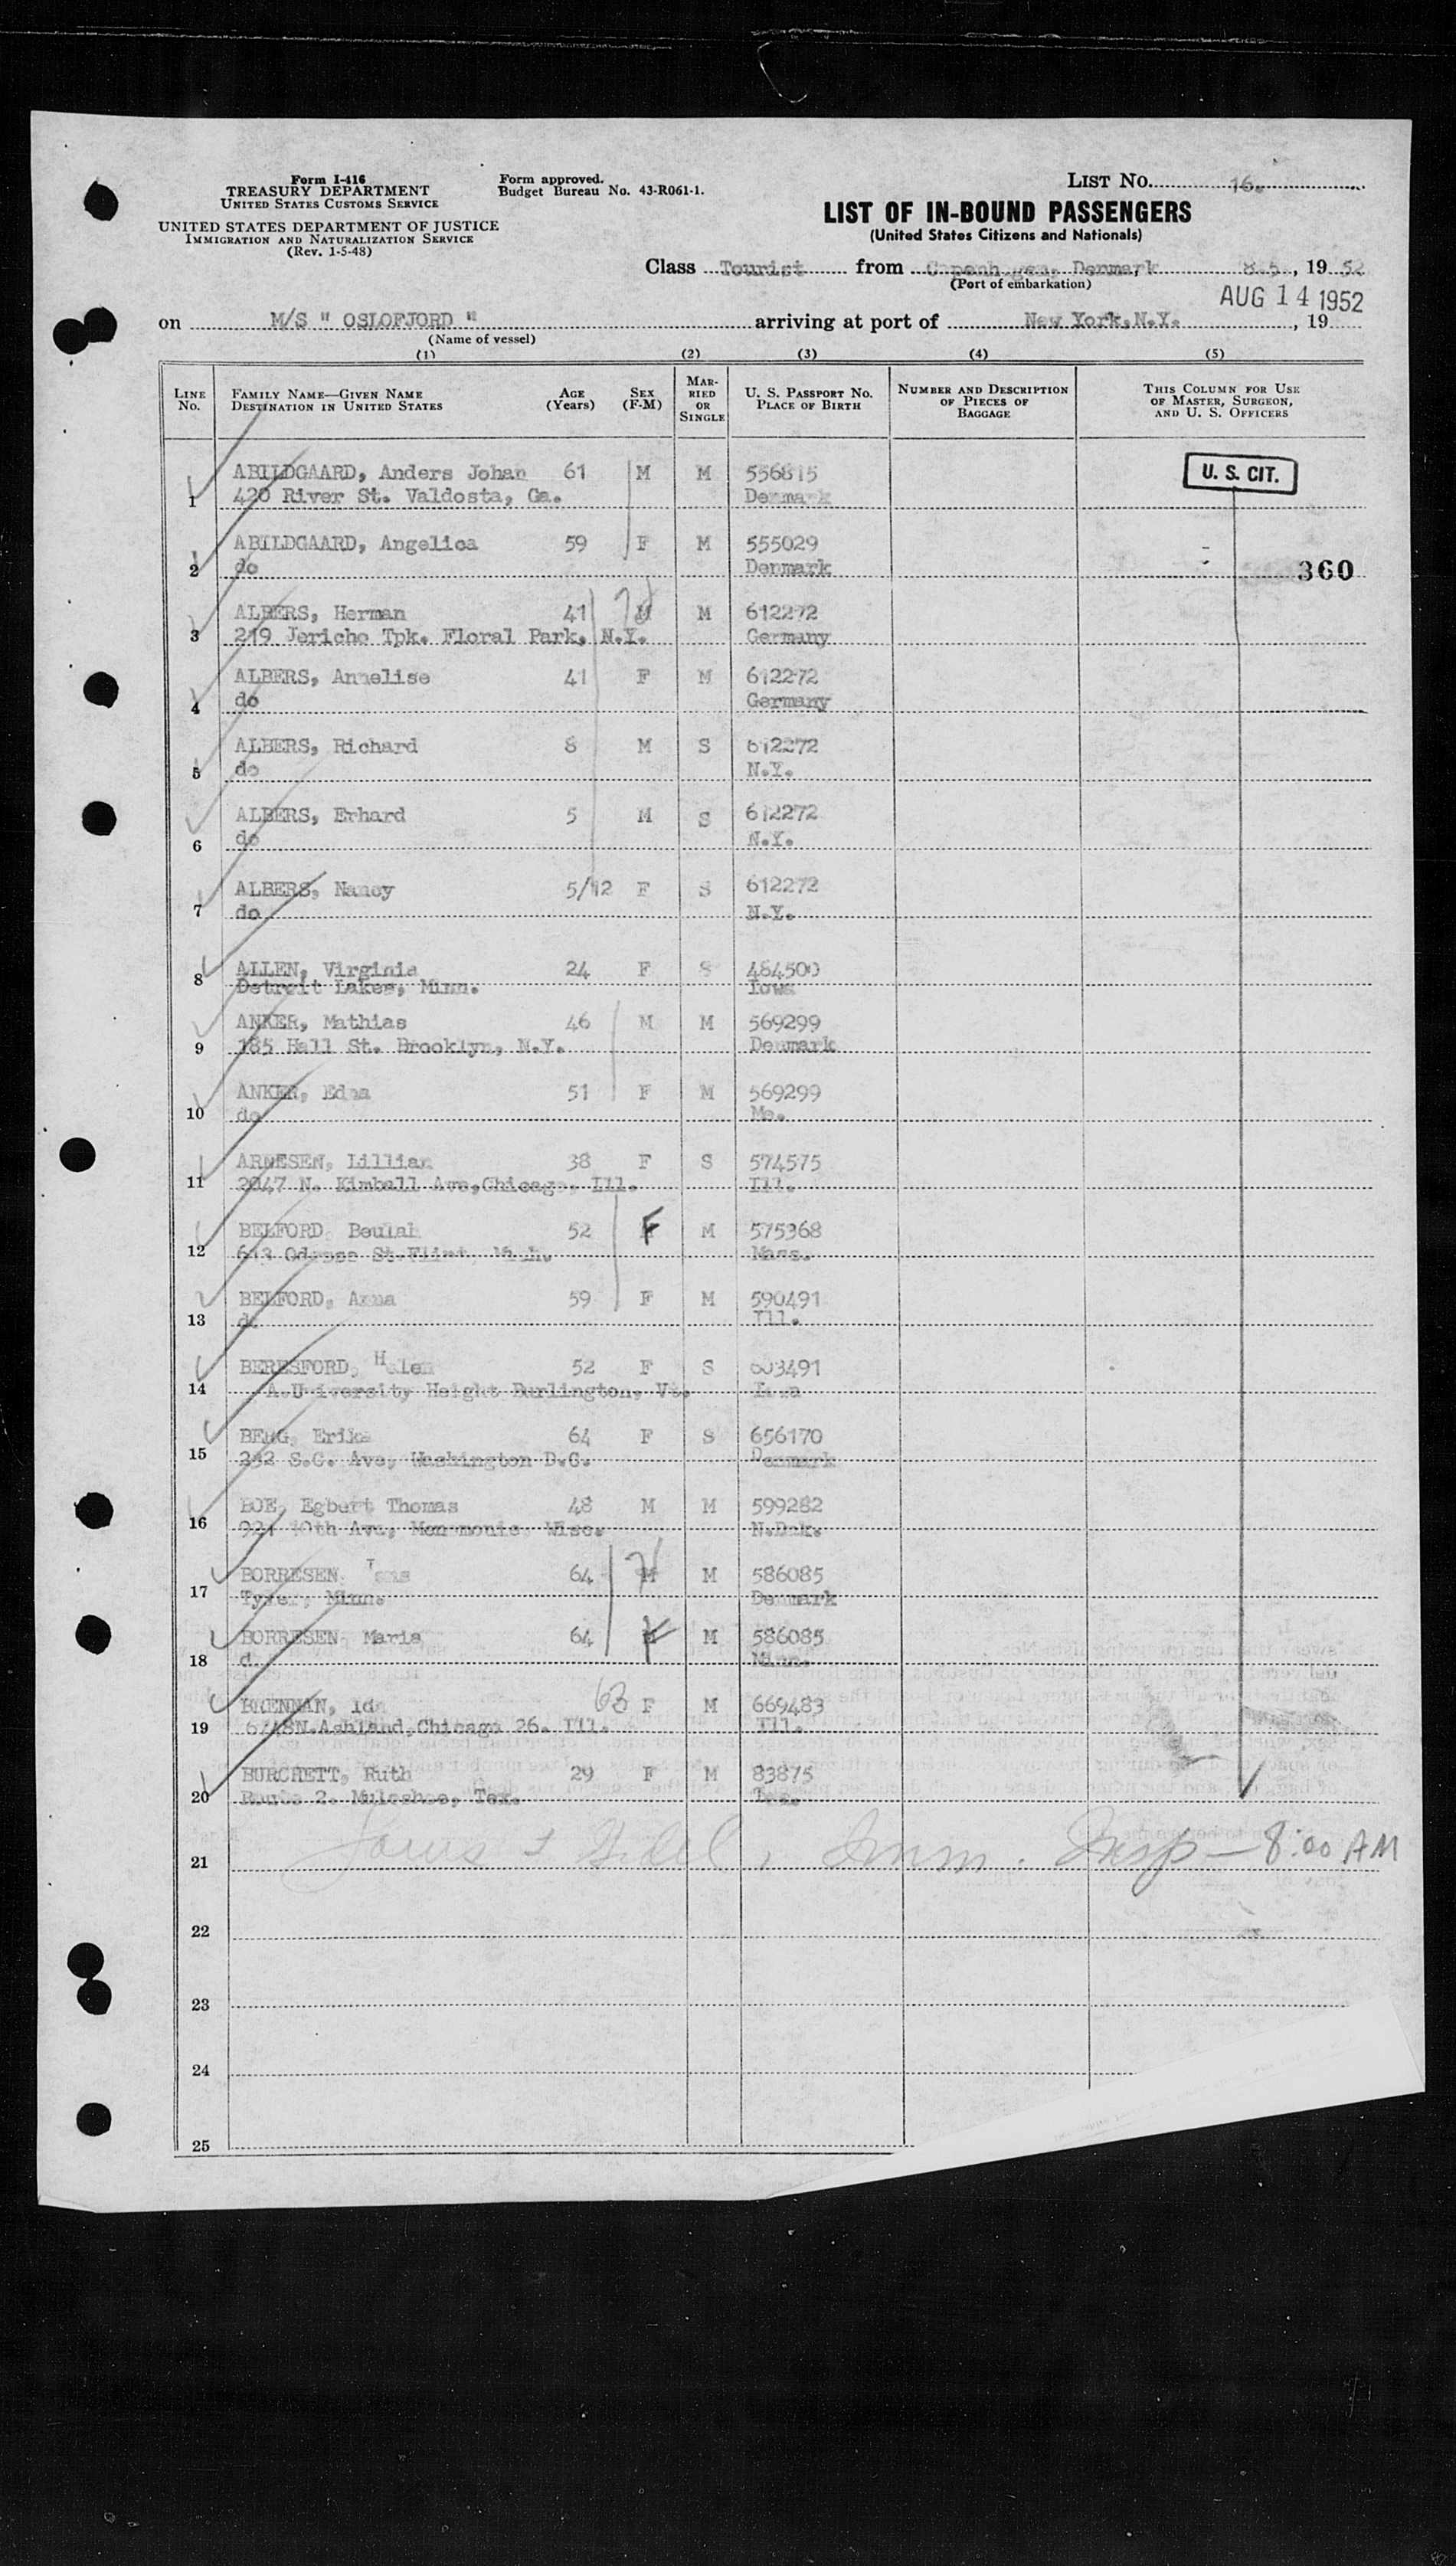 Form I-416
TREASURY DEPARTMENT
UNITED STATES CUSTOMS SERVICE
UNITED STATES DEPARTMENT OF JUSTICE
IMMIGRATION AND NATURALIZATION SERVICE
(Rev. 1-5-48)
Form approved.
Budget Bureau No. 43-R061-1.
LIST No. 16.
LIST OF IN-BOUND PASSENGERS
(United States Citizens and Nationals)
Class Tourist from Copenhagen, Denmark 8.5., 19 52
(Port of embarkation)
AUG 14 1952
on M/S " OSLOFJORD " arriving at port of New York,N.Y. , 19
(Name of vessel)
(1) (2) (3) (4) (5)
LINE No. FAMILY NAME—GIVEN NAME DESTINATION IN UNITED STATES AGE (Years) SEX (F-M) MARRIED OR SINGLE U. S. PASSPORT No. PLACE OF BIRTH NUMBER AND DESCRIPTION OF PIECES OF BAGGAGE THIS COLUMN FOR USE OF MASTER, SURGEON, AND U. S. OFFICERS
U. S. CIT.
ABILDGAARD, Anders Johan 61 M M 556815
1 420 River St. Valdosta, Ga. Denmark
ABILDGAARD, Angelica 59 F M 555029
2 do Denmark 360
ALBERS, Herman 41 M M 612272
3 219 Jericho Tpk. Floral Park, N.Y. Germany
ALBERS, Annelise 41 F M 612272
4 do Germany
ALBERS, Richard 8 M S 612272
5 do N.Y.
ALBERS, Erhard 5 M S 612272
6 do N.Y.
ALBERS, Nancy 5/12 F S 612272
7 do N.Y.
ALLEN, Virginia 24 F S 484500
8 Detroit Lakes, Minn. Iowa
ANKER, Mathias 46 M M 569299
9 185 Hall St. Brooklyn, N.Y. Denmark
ANKER, Edna 51 F M 569299
10 do Mo.
ARNESEN, Lillian 38 F S 574575
11 2047 N. Kimball Ave,Chicago, Ill. Ill.
BELFORD, Beulah 52 F M 575368
12 St.Flint, Mich. Mass.
BELFORD, Anna 59 F M 590491
13 do Ill.
BERESFORD, Helen 52 F S 603491
14 University Height Burlington, Vt. Iowa
BERG, Erika 64 F S 656170
15 232 S.C. Ave, Washington D.C. Denmark
BOE, Egbert Thomas 48 M M 599282
16 10th Ave, Menomonie, Wisc. N.Dak.
BORRESEN, 64 M M 586085
17 Tyler, Minn. Denmark
BORRESEN, Marie 64 F M 586085
18 do Minn.
BRENNAN, Ida 63 F M 669483
19 N.Ashland,Chicago 26. Ill. Ill.
BURCHETT, Ruth 29 F M 83875
20 Route 2. Muleshoe, Tex. Tex.
21 Imm. Insp — 8:00 AM
22
23
24
25